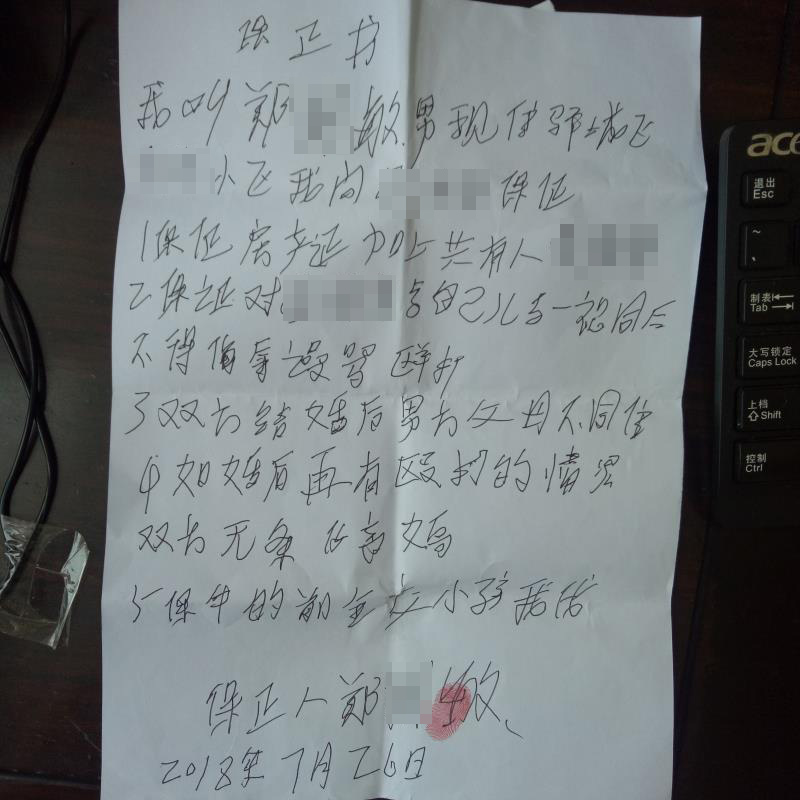 保正书
我叫郑 敏男现住驿城飞
小飞我向 保证
1保证房产证加上共有人
2保证对 自己儿 一视同仁
不得侮辱 骂殴打
3双方结婚后男方父母不同住
4如婚后再有殴打的情况
双方无条件离婚
5 的 小孩我
保正人郑 敏、
2018年7月26日
acer
退出
Esc
~
、
制表
Tab
大写锁定
Caps Lock
上档
Shift
控制
Ctrl